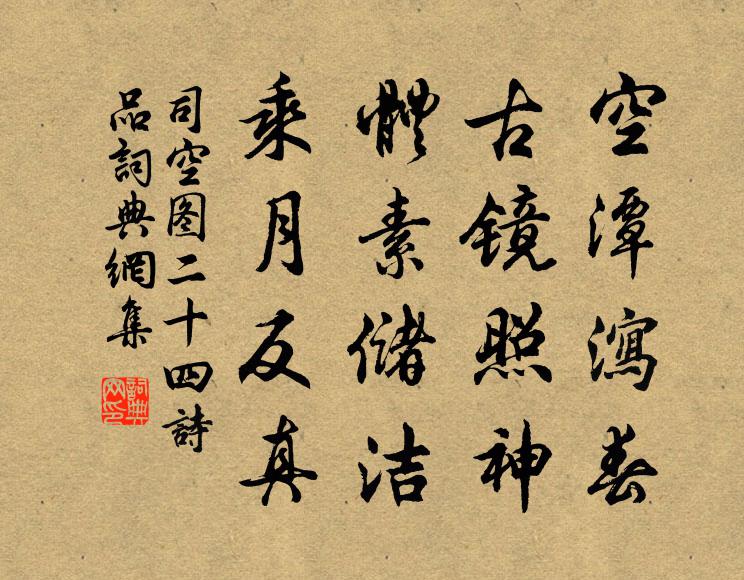 空潭瀉春
古镜照神
體素儲洁
乘月反真
司空图二十四詩
品詞典網集
詞典
网印